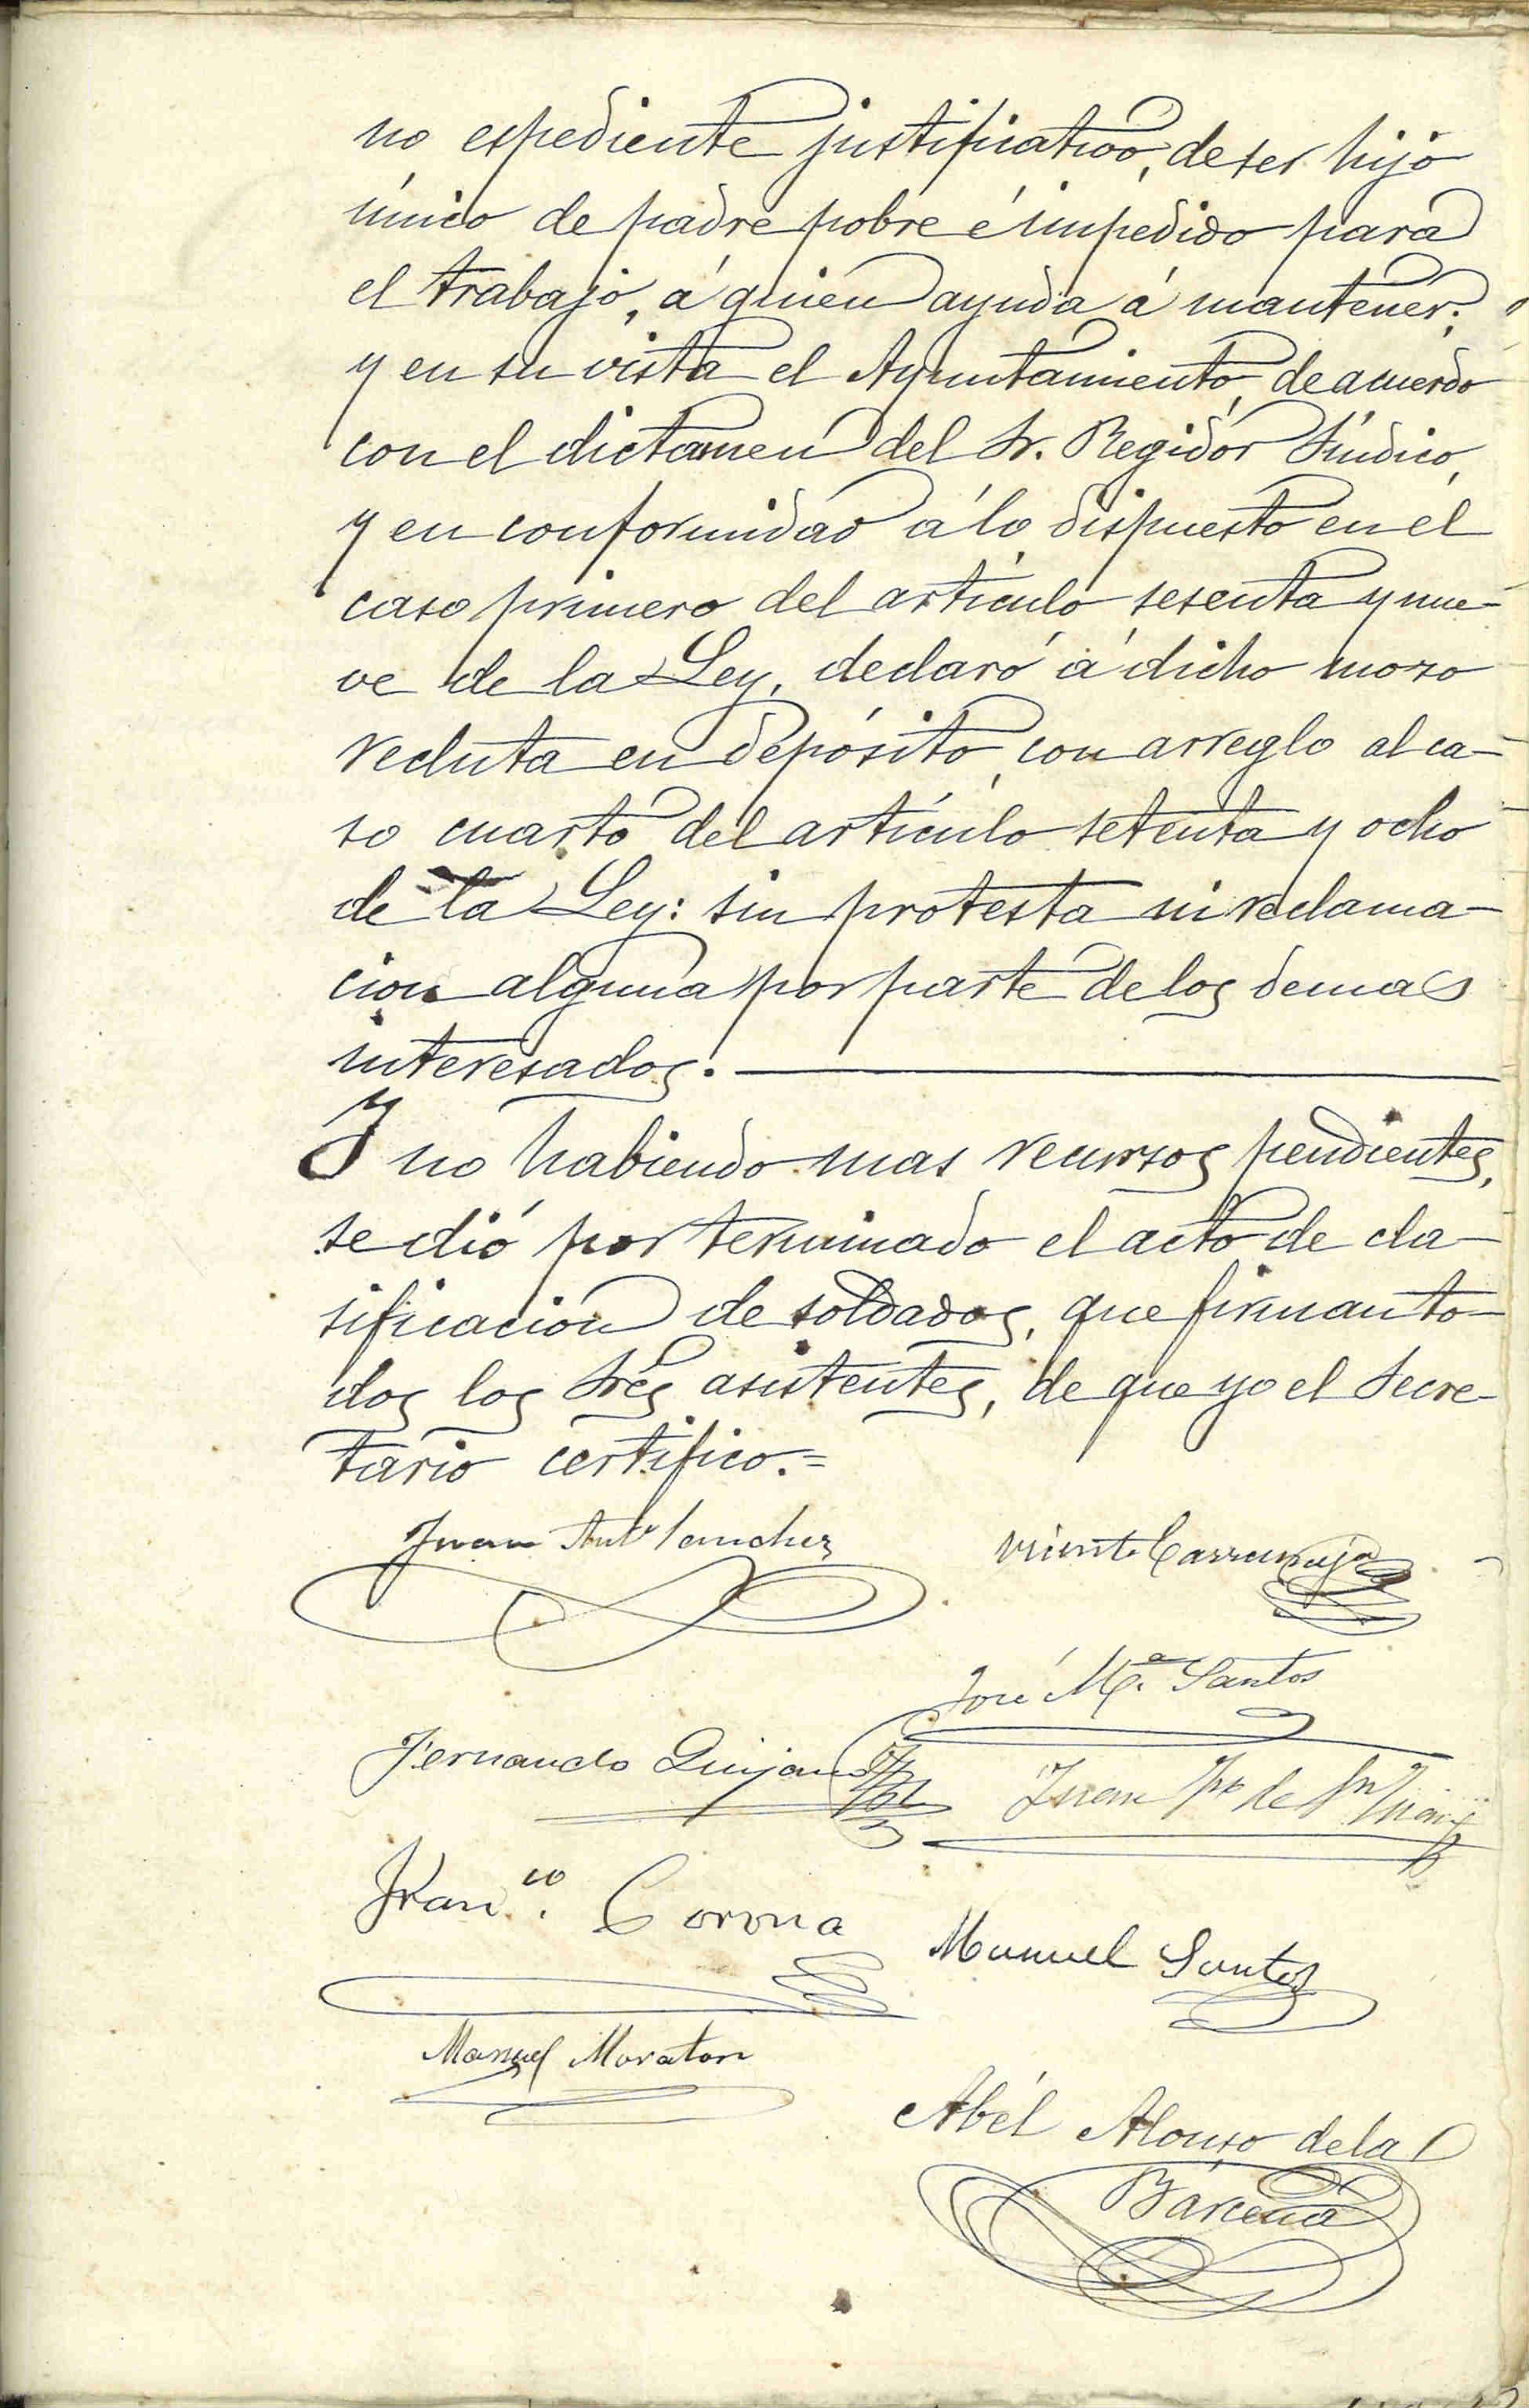 no espediente justificativo, de ser hijo
único de padre pobre é impedido para
el trabajo, á quien ayuda á mantener;
y en su vista el Ayuntamiento, de acuerdo
con el dictamen del Sr. Regidor Síndico,
y en conformidad á lo dispuesto en el
caso primero del artículo sesenta y nue-
ve de la Ley, declaró á dicho mozo
recluta en depósito, con arreglo al ca-
so cuarto del artículo setenta y ocho
de la Ley: sin protesta ni reclama-
cion alguna por parte de los demas
interesados.
Y no habiendo mas recursos pendientes,
se dió por terminado el acto de cla-
sificacion de soldados, que firman to-
dos los Sres asistentes, de que yo el Secre-
tario certifico.=
Juan Anto Sanchez
Vicente Carramaja
José Mª. Santos
Fernando Quijano
Juan de
Franco. Corona
Manuel Santos
Manuel Moraton
Abél Alonso de la
Bárcena